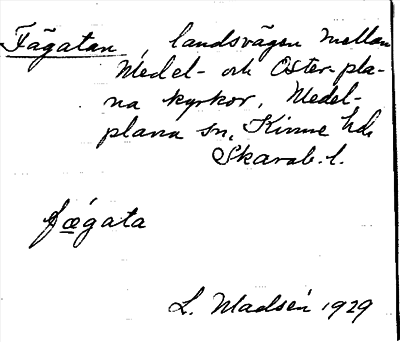 Fägatan, landsvägen mellan
Medel- och Öster-pla-
na kyrkor, Medel-
plana sn, Kinne hd.
Skarab. l.
fægata
L. Madsén 1929